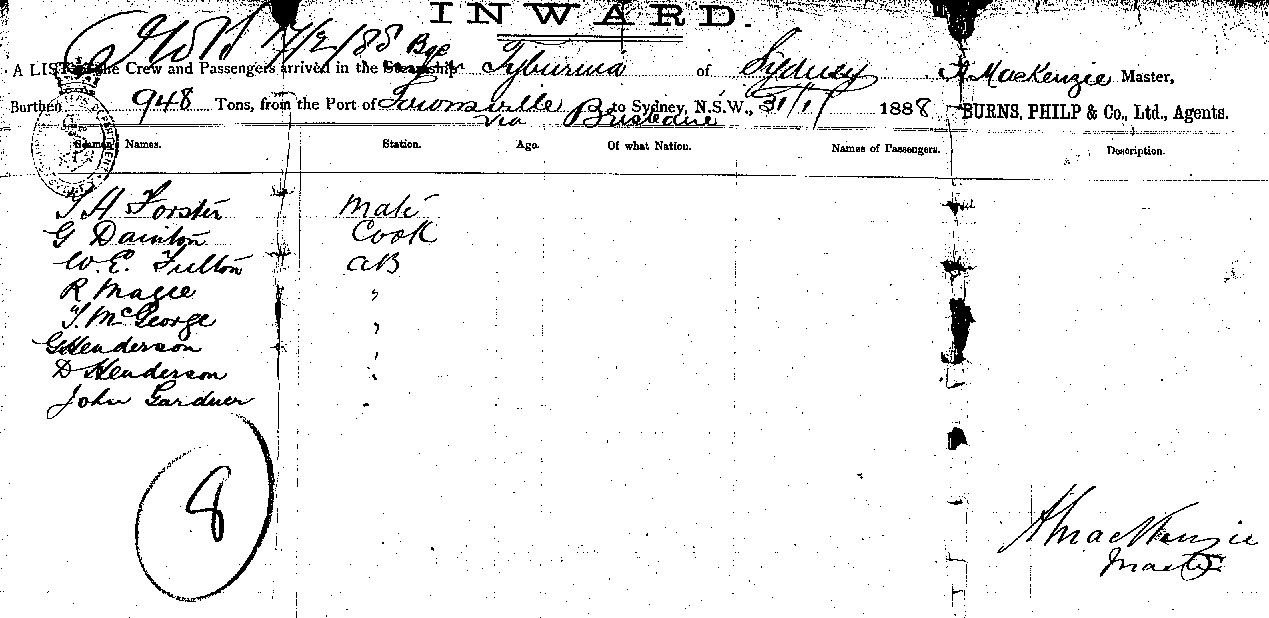 INWARD.
17/2/88 Bge
A LIST of the Crew and Passengers arrived in the Steamship Tyburnia of Sydney, A MacKenzie Master,
Burthen 948 Tons, from the Port of Townsville via Brisbane to Sydney, N.S.W., 31/1/ 1888 BURNS, PHILP & Co., Ltd., Agents.
Seamen's Names. Station. Age. Of what Nation. Names of Passengers. Description.
T H Forster Mate
G Dainton Cook
W. E. Fulton AB
R Magee "
T. McGeorge "
G Henderson "
D Henderson "
John Gardner "
8
A MacKenzie
Master